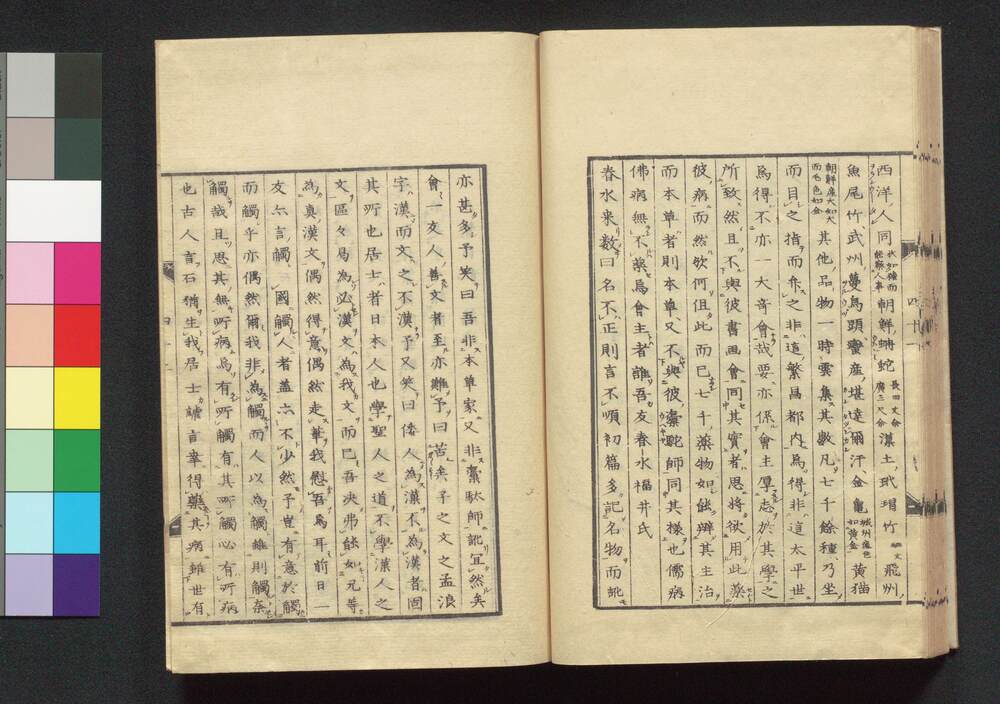 西洋人同状如猿而能解人事朝鮮蚺蛇長四丈余廣三尺余漢土玳瑁竹飛州
魚尾竹武州蔓烏頭蠻産堪達爾汗金龜黄猫
朝鮮産大如犬而毛色如金其他品物一時雲集其數凡七千餘種乃坐
而目之指而弁之非這繁昌都内焉得非這太平世
焉得不亦一大奇會哉要亦係會主厚志於其學之
所致然且不與彼書画會同其實者思將欲用此薬
彼病而然欤何但此而已七千薬物如能辨其主治
而本草者則本草又不與彼槖駝師同其樣也儒病
佛病無不薬焉會主者誰吾友春水福井氏
春水来数曰名不正則言不順初篇多記名物而訛
亦甚多予笑曰吾非本草家又非槖駄師訛宜然矣
會一友人善文者至亦難予曰苦矣子之文之孟浪
字漢而文之不漢予又笑曰倭人為漢不為漢者固
其所也居士者日本人也學聖人之道不學漢人之
文區々焉為必漢文為我文而已吾决弗能如兄等
為真漢文偶然得意偶然走筆我慰吾焉耳前日一
友亦言觸國觸人者盖亦不少然予豈有意於觸
而觸乎亦偶然爾我非為觸而人以為觸雖則觸奈
觸哉且思其無所病焉有所觸有其所觸必有所病
也古人言石猶生我居士讆言幸得藥其病雖世有
四十一